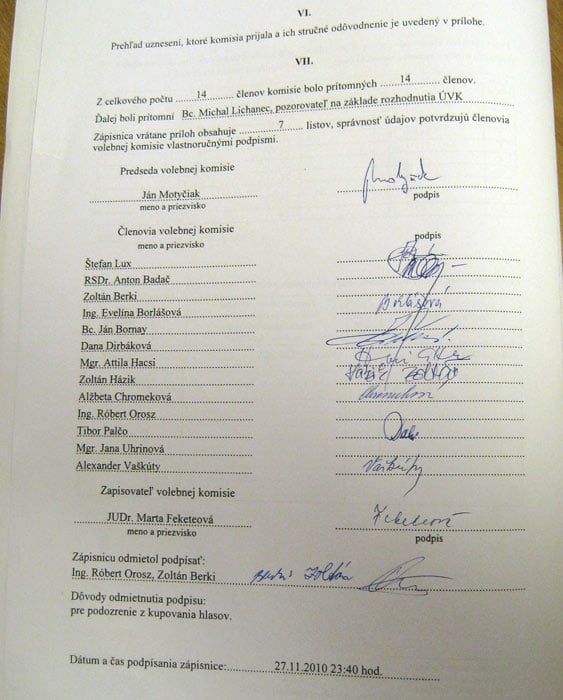 VI.
Prehľad uznesení, ktoré komisia prijala a ich stručné odôvodnenie je uvedený v prílohe.
VII.
Z celkového počtu 14 členov komisie bolo prítomných 14 členov.
Ďalej boli prítomní Bc. Michal Lichanec, pozorovateľ na základe rozhodnutia ÚVK
Zápisnica vrátane príloh obsahuje 7 listov, správnosť údajov potvrdzujú členovia
volebnej komisie vlastnoručnými podpismi.
Predseda volebnej komisie
Ján Motyčiak
meno a priezvisko
podpis
Členovia volebnej komisie
meno a priezvisko
podpis
Štefan Lux
RSDr. Anton Badač
Zoltán Berki
Ing. Evelína Borlášová Borlášová
Bc. Ján Bornay
Dana Dirbáková
Mgr. Attila Hacsi
Zoltán Házik Házik Zoltán
Alžbeta Chromeková
Ing. Róbert Orosz
Tibor Palčo
Mgr. Jana Uhrinová
Alexander Vaškúty Vaškúty
Zapisovateľ volebnej komisie
JUDr. Marta Feketeová Feketeová
meno a priezvisko
podpis
Zápisnicu odmietol podpísať:
Ing. Róbert Orosz, Zoltán Berki Zoltán
Dôvody odmietnutia podpisu:
pre podozrenie z kupovania hlasov.
Dátum a čas podpísania zápisnice: 27.11.2010 23:40 hod.